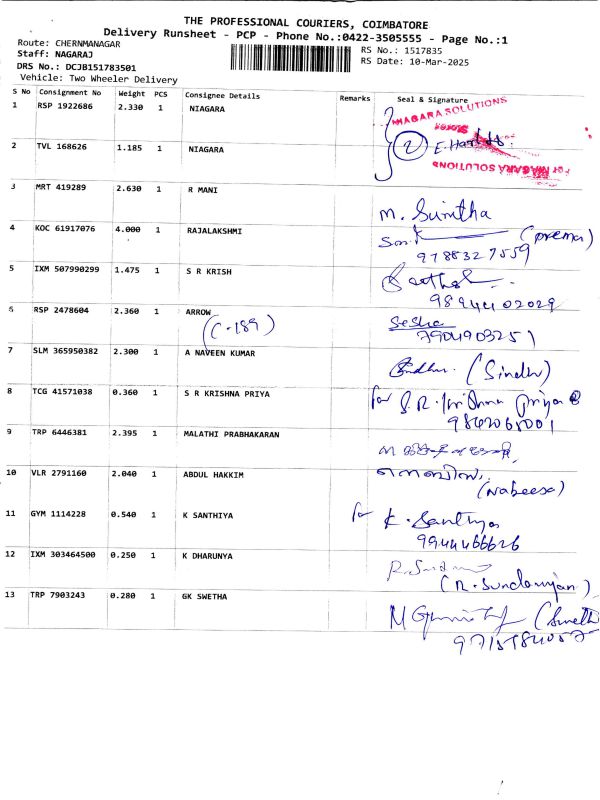 THE PROFESSIONAL COURIERS, COIMBATORE
Delivery Runsheet - PCP - Phone No.:0422-3505555 - Page No.:1
Route: CHERNMANAGAR
Staff: NAGARAJ
DRS No.: DCJB151783501
Vehicle: Two Wheeler Delivery
RS No.: 1517835
RS Date: 10-Mar-2025
S No Consignment No Weight PCS Consignee Details Remarks Seal & Signature
1 RSP 1922686 2.330 1 NIAGARA
NIAGARA SOLUTIONS
2
For NIAGARA SOLUTIONS
2 TVL 168626 1.185 1 NIAGARA
3 MRT 419289 2.630 1 R MANI
M. Sunitha
4 KOC 61917076 4.000 1 RAJALAKSHMI
(prema)
9788327559
5 IXM 507990299 1.475 1 S R KRISH
9894402029
6 RSP 2478604 2.360 1 ARROW
(C-189)
Sesha
7904903251
7 SLM 365950382 2.300 1 A NAVEEN KUMAR
(Sindhu)
8 TCG 41571038 0.360 1 S R KRISHNA PRIYA
for S.R. Krishna Priya
9842065001
9 TRP 6446381 2.395 1 MALATHI PRABHAKARAN
10 VLR 2791160 2.040 1 ABDUL HAKKIM
(Nabeesa)
11 GYM 1114228 0.540 1 K SANTHIYA
for K. Santhiya
9944466626
12 IXM 303464500 0.250 1 K DHARUNYA
(R. Sundarrajan)
13 TRP 7903243 0.280 1 GK SWETHA